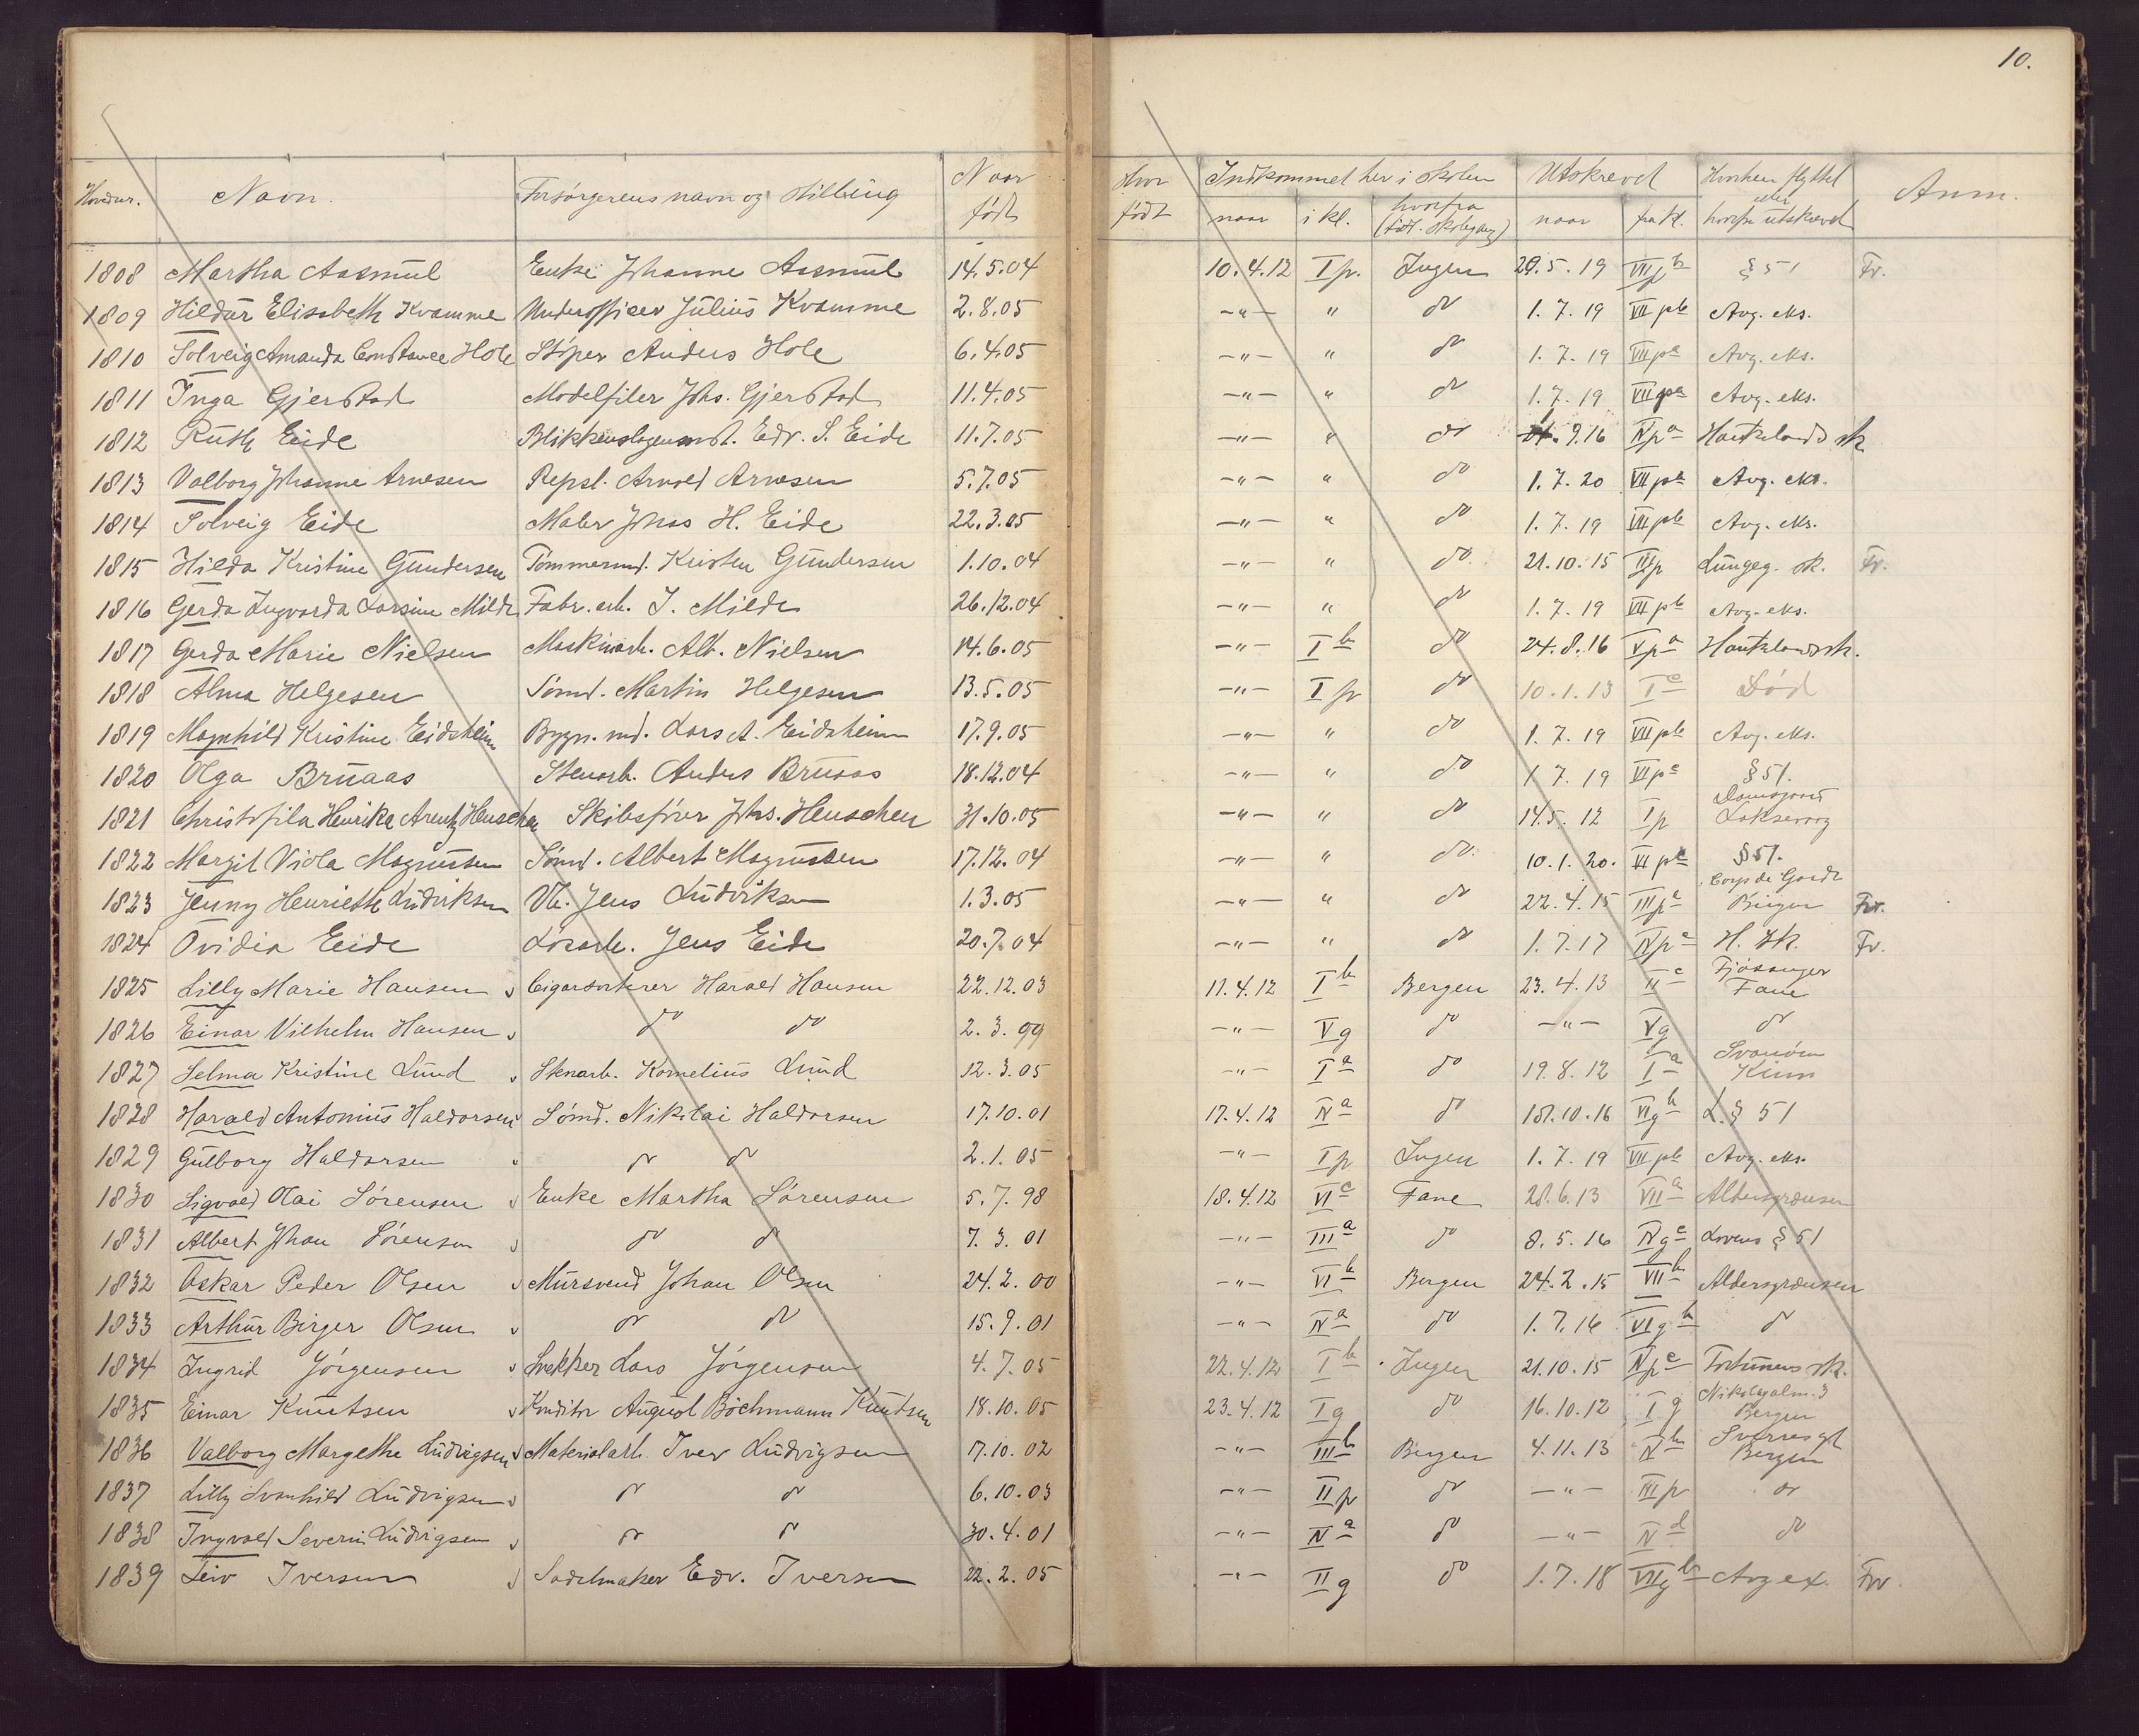 10.
Hovednr. Navn. Forsørgerens navn og stilling Naar født Hvor født Indkommet her i skolen Utskrevet Hvorhen flyttet eller hvorfor utskrevet Anm.
naar i kl. hvorfra (tidl. skolegang) naar fra kl.
1808 Martha Aasmul Enke Johanne Aasmul 14.5.04 10.4.12 I p. Ingen 29.5.19 VII p b § 51 Fr.
1809 Hildur Elisabeth Kvamme Underofficer Julius Kvamme 2.8.05 -"- " do 1.7.19 VII pb Avg. eks.
1810 Solveig Amanda Constance Hole Støper Anders Hole 6.4.05 -"- " do 1.7.19 VII pa Avg. eks.
1811 Inga Gjerstad Modelfiler Johs. Gjerstad 11.4.05 -"- " do 1.7.19 VII pa Avg. eks.
1812 Ruth Eide Blikkenslagermst. Edv. S. Eide 11.7.05 -"- " do 9.16 IV p a Haukelands sk
1813 Valborg Johanne Arnesen Repsl. Arnold Arnesen 5.7.05 -"- " do 1.7.20 VII pa Avg. eks.
1814 Solveig Eide Maler Johs H. Eide 22.3.05 -"- " do 1.7.19 VII pb Avg. eks.
1815 Hilda Kristine Gundersen Tømmermd. Kristen Gundersen 1.10.04 -"- " do 21.10.15 III p Lungeg. sk. Fr.
1816 Gerda Ingvarda Larsine Milde Fabr. arb. I. Milde 26.12.04 -"- " do 1.7.19 VII pb Avg. eks.
1817 Gerda Marie Nielsen Maskinarb. Alb. Nielsen 14.6.05 -"- I b do 24.8.16 V p a Haukeland sk.
1818 Alma Helgesen Sømd. Martin Helgesen 13.5.05 -"- I p do 10.1.13 I c Død
1819 Magnhild Kristine Eidsheim Bygn. md. Lars A. Eidsheim 17.9.05 -"- " do 1.7.19 VII pb Avg. eks.
1820 Olga Bruaas Stenarb. Anders Bruaas 18.12.04 -"- " do 1.7.19 VI pc § 51.
1821 Christofila Henrike Arentz Henschen Skibsfører Johs. Henschen 31.10.05 -"- " do 14.5.12 I p Damsgaard Laksevaag
1822 Margit Viola Magnussen Sømd. Albert Magnussen 17.12.04 -"- " do 10.1.20. VI pc § 51.
1823 Jenny Henriette Ludviksen Vk. Jens Ludviksen 1.3.05 -"- " do 22.4.15 III p c Corps de Garde Bergen Fr.
1824 Ovidia Eide Løsarb. Jens Eide 20.7.04 -"- " do 1.7.17 IV p c H. sk. Fr.
1825 Lilly Marie Hansen Cigarsorterer Harald Hansen 22.12.03 17.4.12 I b Bergen 23.4.13 II c Fjøsanger Fane
1826 Einar Vilhelm Hansen do do 2.3.99 -"- V g do -"- V g do
1827 Selma Kristine Lund Stenarb. Kornelius Lund 12.3.05 -"- I a do 19.8.12 I a Svanøen Kinn
1828 Harald Antonius Haldorsen Sømd. Nikolai Haldorsen 17.10.01 17.4.12 IV a do 18.10.16 VI g b L. § 51
1829 Gulborg Haldorsen do do 2.1.05 -"- I p Ingen 1.7.19 VII pb Avg. eks.
1830 Sigvald Olai Sørensen Enke Martha Sørensen 5.7.98 18.4.12 VI c Fane 28.6.13 VII a Aldersgrænsen
1831 Albert Johan Sørensen do do 7.3.01 -"- III a do 8.5.16 IV g c Lovens § 51
1832 Oskar Peder Olsen Mursvend Johan Olsen 24.2.00 -"- VI b Bergen 24.2.15 VII b Aldersgrænsen
1833 Arthur Birger Olsen do do 15.9.01 -"- IV a do 1.7.16 VI g b do
1834 Ingrid Jørgensen Snekker Lars Jørgensen 4.7.05 22.4.12 I b Ingen 21.10.15 IV p c Fortunens sk.
1835 Einar Knutsen Konditor August Bøchmann Knutsen 18.10.05 23.4.12 I g do 16.10.12 I g Nikolaysalm. 3 Bergen
1836 Valborg Margethe Ludvigsen Materialarb. Iver Ludvigsen 17.10.02 -"- III b Bergen 4.11.13 IV b Sverresgt Bergen
1837 Lilly Svanhild Ludvigsen do do 6.10.03 -"- II p do -"- III p do
1838 Ingvald Severin Ludvigsen do do 30.4.01 -"- IV a do -"- IV d do
1839 Leiv Iversen Sadelmaker Edv. Iversen 22.2.05 -"- II g do 1.7.18 VII g b Avg ex. Frv